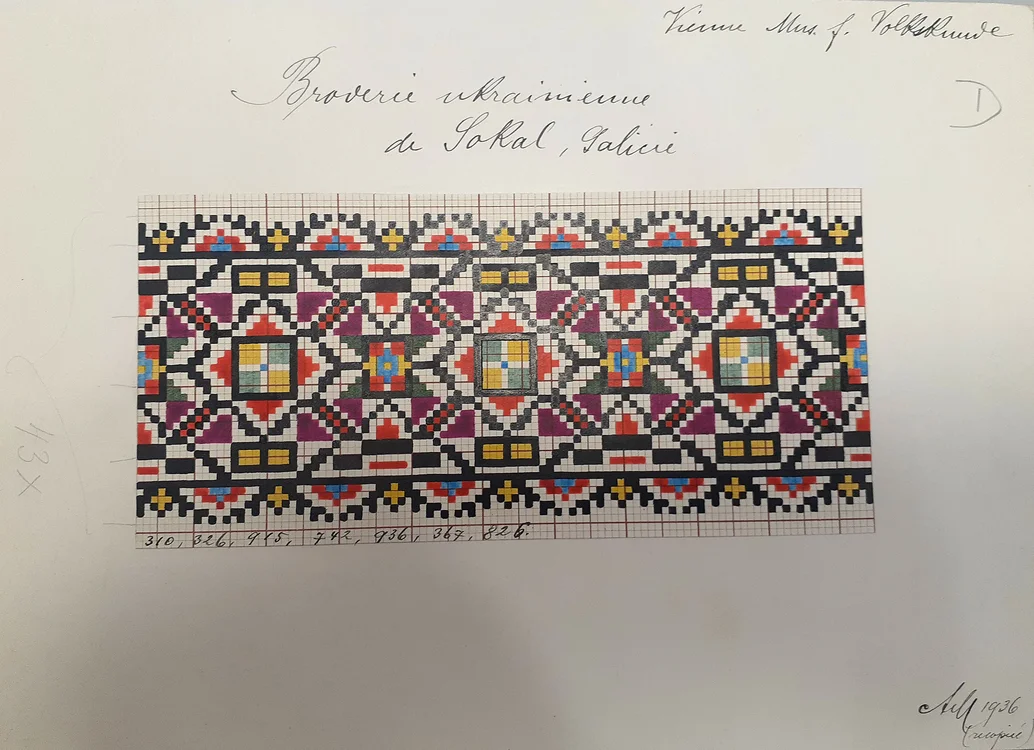 Vienne Mus. f. Volkskunde
D
Broderie ukrainienne
de Sokal, Galicie
310, 326, 915, 742, 936, 367, 826.
43x
1936
(recopié)